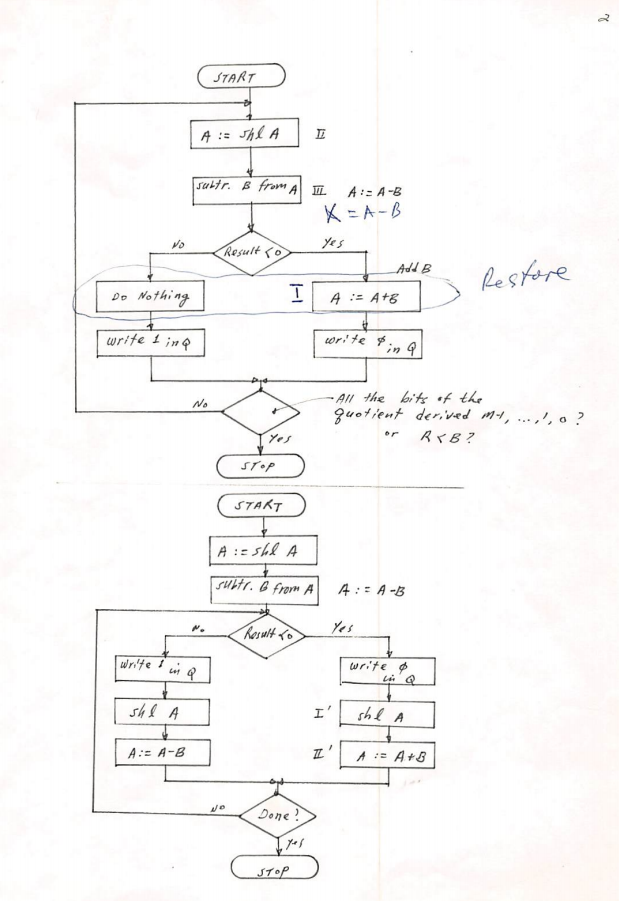 2
START
A := shl A
II
subtr. B from A
III
A := A-B
X = A-B
No
Result < 0
Yes
Add B
Restore
Do Nothing
I
A := A+B
write 1 in Q
write φ in Q
No
All the bits of the
quotient derived m-1, ..., 1, 0 ?
or R < B ?
Yes
STOP
START
A := shl A
subtr. B from A
A := A-B
No
Result < 0
Yes
write 1 in Q
write φ
in Q
shl A
I'
shl A
A := A-B
II'
A := A+B
NO
Done?
Yes
STOP